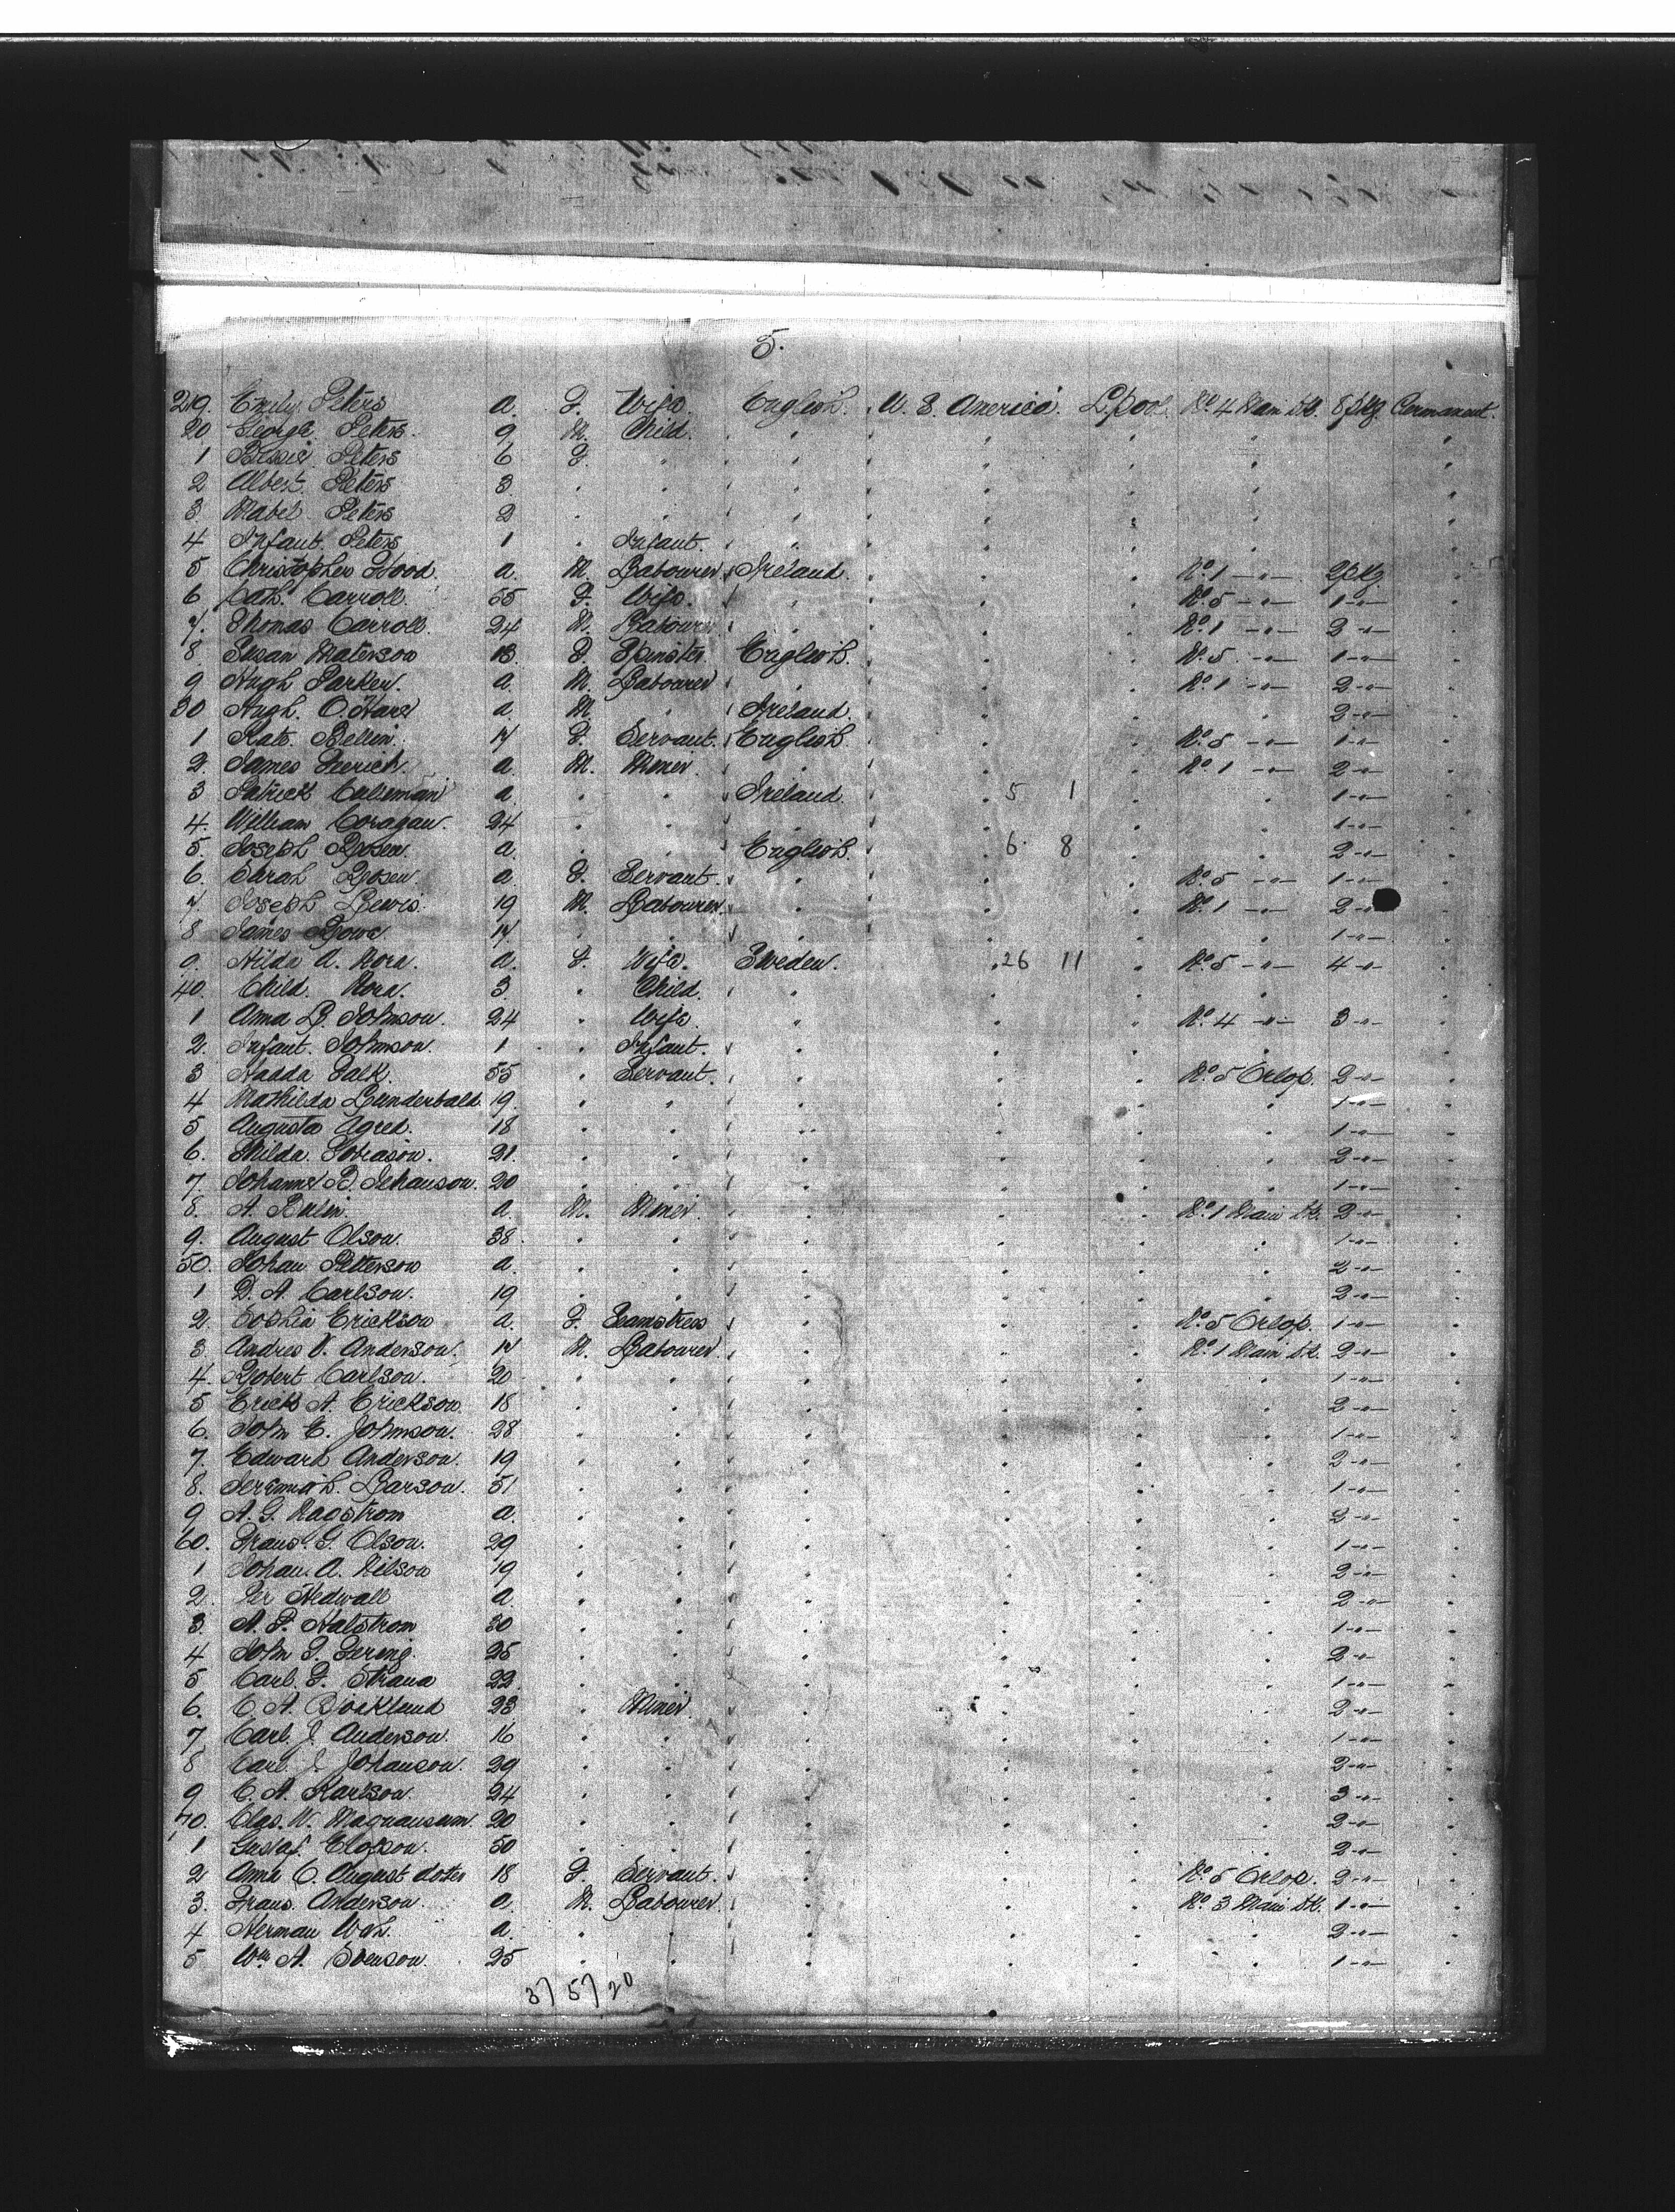 5.
219. Emily Peters a. F. Wife. English. U. S. America. L.pool. No. 4 Main Dk. 8 pkg. Permanent.
20 George Peters. 9 M. Child.
1 Bessie Peters 6 F.
2 Albert. Peters 3.
3 Mabel Peters 2
4 Infant. Peters 1 Infant.
5 Christopher Wood. a. M. Labourer Ireland. No. 1 -"- 2 pkg
6 Cath. Carroll. 55 F. Wife. No. 5 -"- 1 -"-
7. Thomas Carroll. 24 M. Labourer No. 1 -"- 2 -"-
8 Susan Materson 18. F. Spinster. English. No. 5 -"- 1 -"-
9 Hugh Parker. a. M. Labourer No. 1 -"- 2 -"-
30 Hugh. O.Hara a. M. Ireland. 2 -"-
1 Kate. Bellin. 17 F. Servant. English. No. 5 -"- 1 -"-
2. James a. M. Miner. No. 1 -"- 2 -"-
3 Patrick a. Ireland. 5 1 1 -"-
4. William Coragan. 24 1 -"-
5. Joseph a. English. 6. 8 2 -"-
6. Sarah a F. Servant. No. 5 -"- 1 -"-
7. Joseph Lewis. 19 M. Labourer. No. 1 -"- 2 -"-
8 James Rowe 17 1 -"-
9. Hilda A. Nora. a. F. Wife. Sweden. 26 11 No. 5 -"- 4 -"-
40. Child. Nora. 3. Child.
1 Anna B. Johnson. 24 Wife. No. 4 -"- 3 -"-
2. Infant. Johnson. 1 Infant.
3 Hadda Falk. 55 Servant. No. 5 Orlop. 2 -"-
4 Mathilda Lunderbald. 19. 1 -"-
5 Augusta Agred. 18 1 -"-
6. Hilda. Tobiason. 21. 2 -"-
7. B. Johanson. 20 1 -"-
8. A. a. M. Miner. No. 1 Main Dk. 2 -"-
9. August Olson. 38 1 -"-
50. Johan Petterson a. 2 -"-
1 D. A. Carlson. 19 2 -"-
2. Sophia Erickson a. F. Seamstress No. 5 Orlop. 1 -"-
3. Andres V. Anderson. 17 M. Labourer. No. 1 Main Dk. 2 -"-
4. Robert Carlson. 20 1 -"-
5 Erick A. Erickson. 18 2 -"-
6. John E. Johnson. 28 1 -"-
7. Edward Anderson. 19 2 -"-
8. Jeremiah. Larson. 51 1 -"-
9 A. G. Hagstrom a. 2 -"-
60. Frans. G. Olson. 29 1 -"-
1 Johan. A. Nilson 19 2 -"-
2. Per Hedwall a. 2 -"-
3. A. F. Halstrom 30 1 -"-
4 John F. 25 2 -"-
5 Carl. F. Strana 22. 1 -"-
6. C. A. Bjorklund 23 Miner. 2 -"-
7 Carl. J. Anderson. 16 1 -"-
8 Carl J. Johanson. 29 2 -"-
9 C. A. Karlson. 24 3 -"-
70. Clas. W. Magnanson. 20 2 -"-
1 Gustaf. Elofson. 50 2 -"-
2 Anna C. August doter 18 F. Servant. No. 5 Orlop. 2 -"-
3. Frans. Anderson. a. M. Labourer. No. 3 Main Dk. 1 -"-
4 Herman a. 2 -"-
5 Wm. A. Svenson. 25 1 -"-
3/ 5/ 20